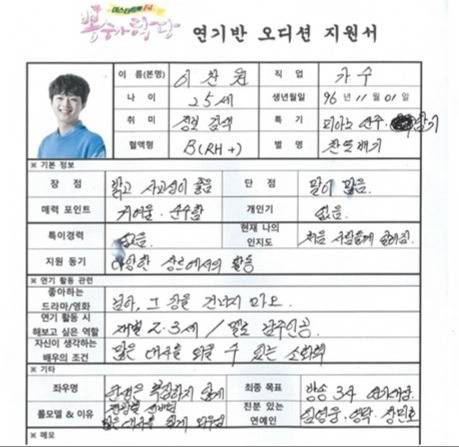 미스터트롯 F4
뽕숭아학당 연기반 오디션 지원서
이 름(본명) 이찬원 직 업 가수
나 이 25세 생년월일 96년 11월 01일
취 미 정보 검색 특 기 피아노 연주
혈액형 B(RH+) 별 명 찬또배기
※ 기본 정보
장 점 밝고 사교성이 좋음 단 점 말이 많음.
매력 포인트 귀여움. 순수함 개인기 없음.
특이경력 없음. 현재 나의 인지도
지원 동기 다양한 장르에서의 활동
※ 연기 활동 관련
좋아하는 드라마/영화 님아, 그 강을 건너지 마오.
연기 활동 시 해보고 싶은 역할 재벌 2·3세 / 멜로 남주인공
자신이 생각하는 배우의 조건 많은 대사를 외울 수 있는
※ 기타
좌우명 최종 목표 방송 3사
롤모델 & 이유 친분 있는 연예인 임영웅·영탁·장민호
※ 메모